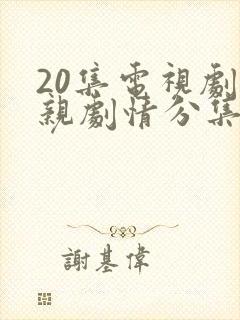 20集電視劇
親劇情分集
謝基偉